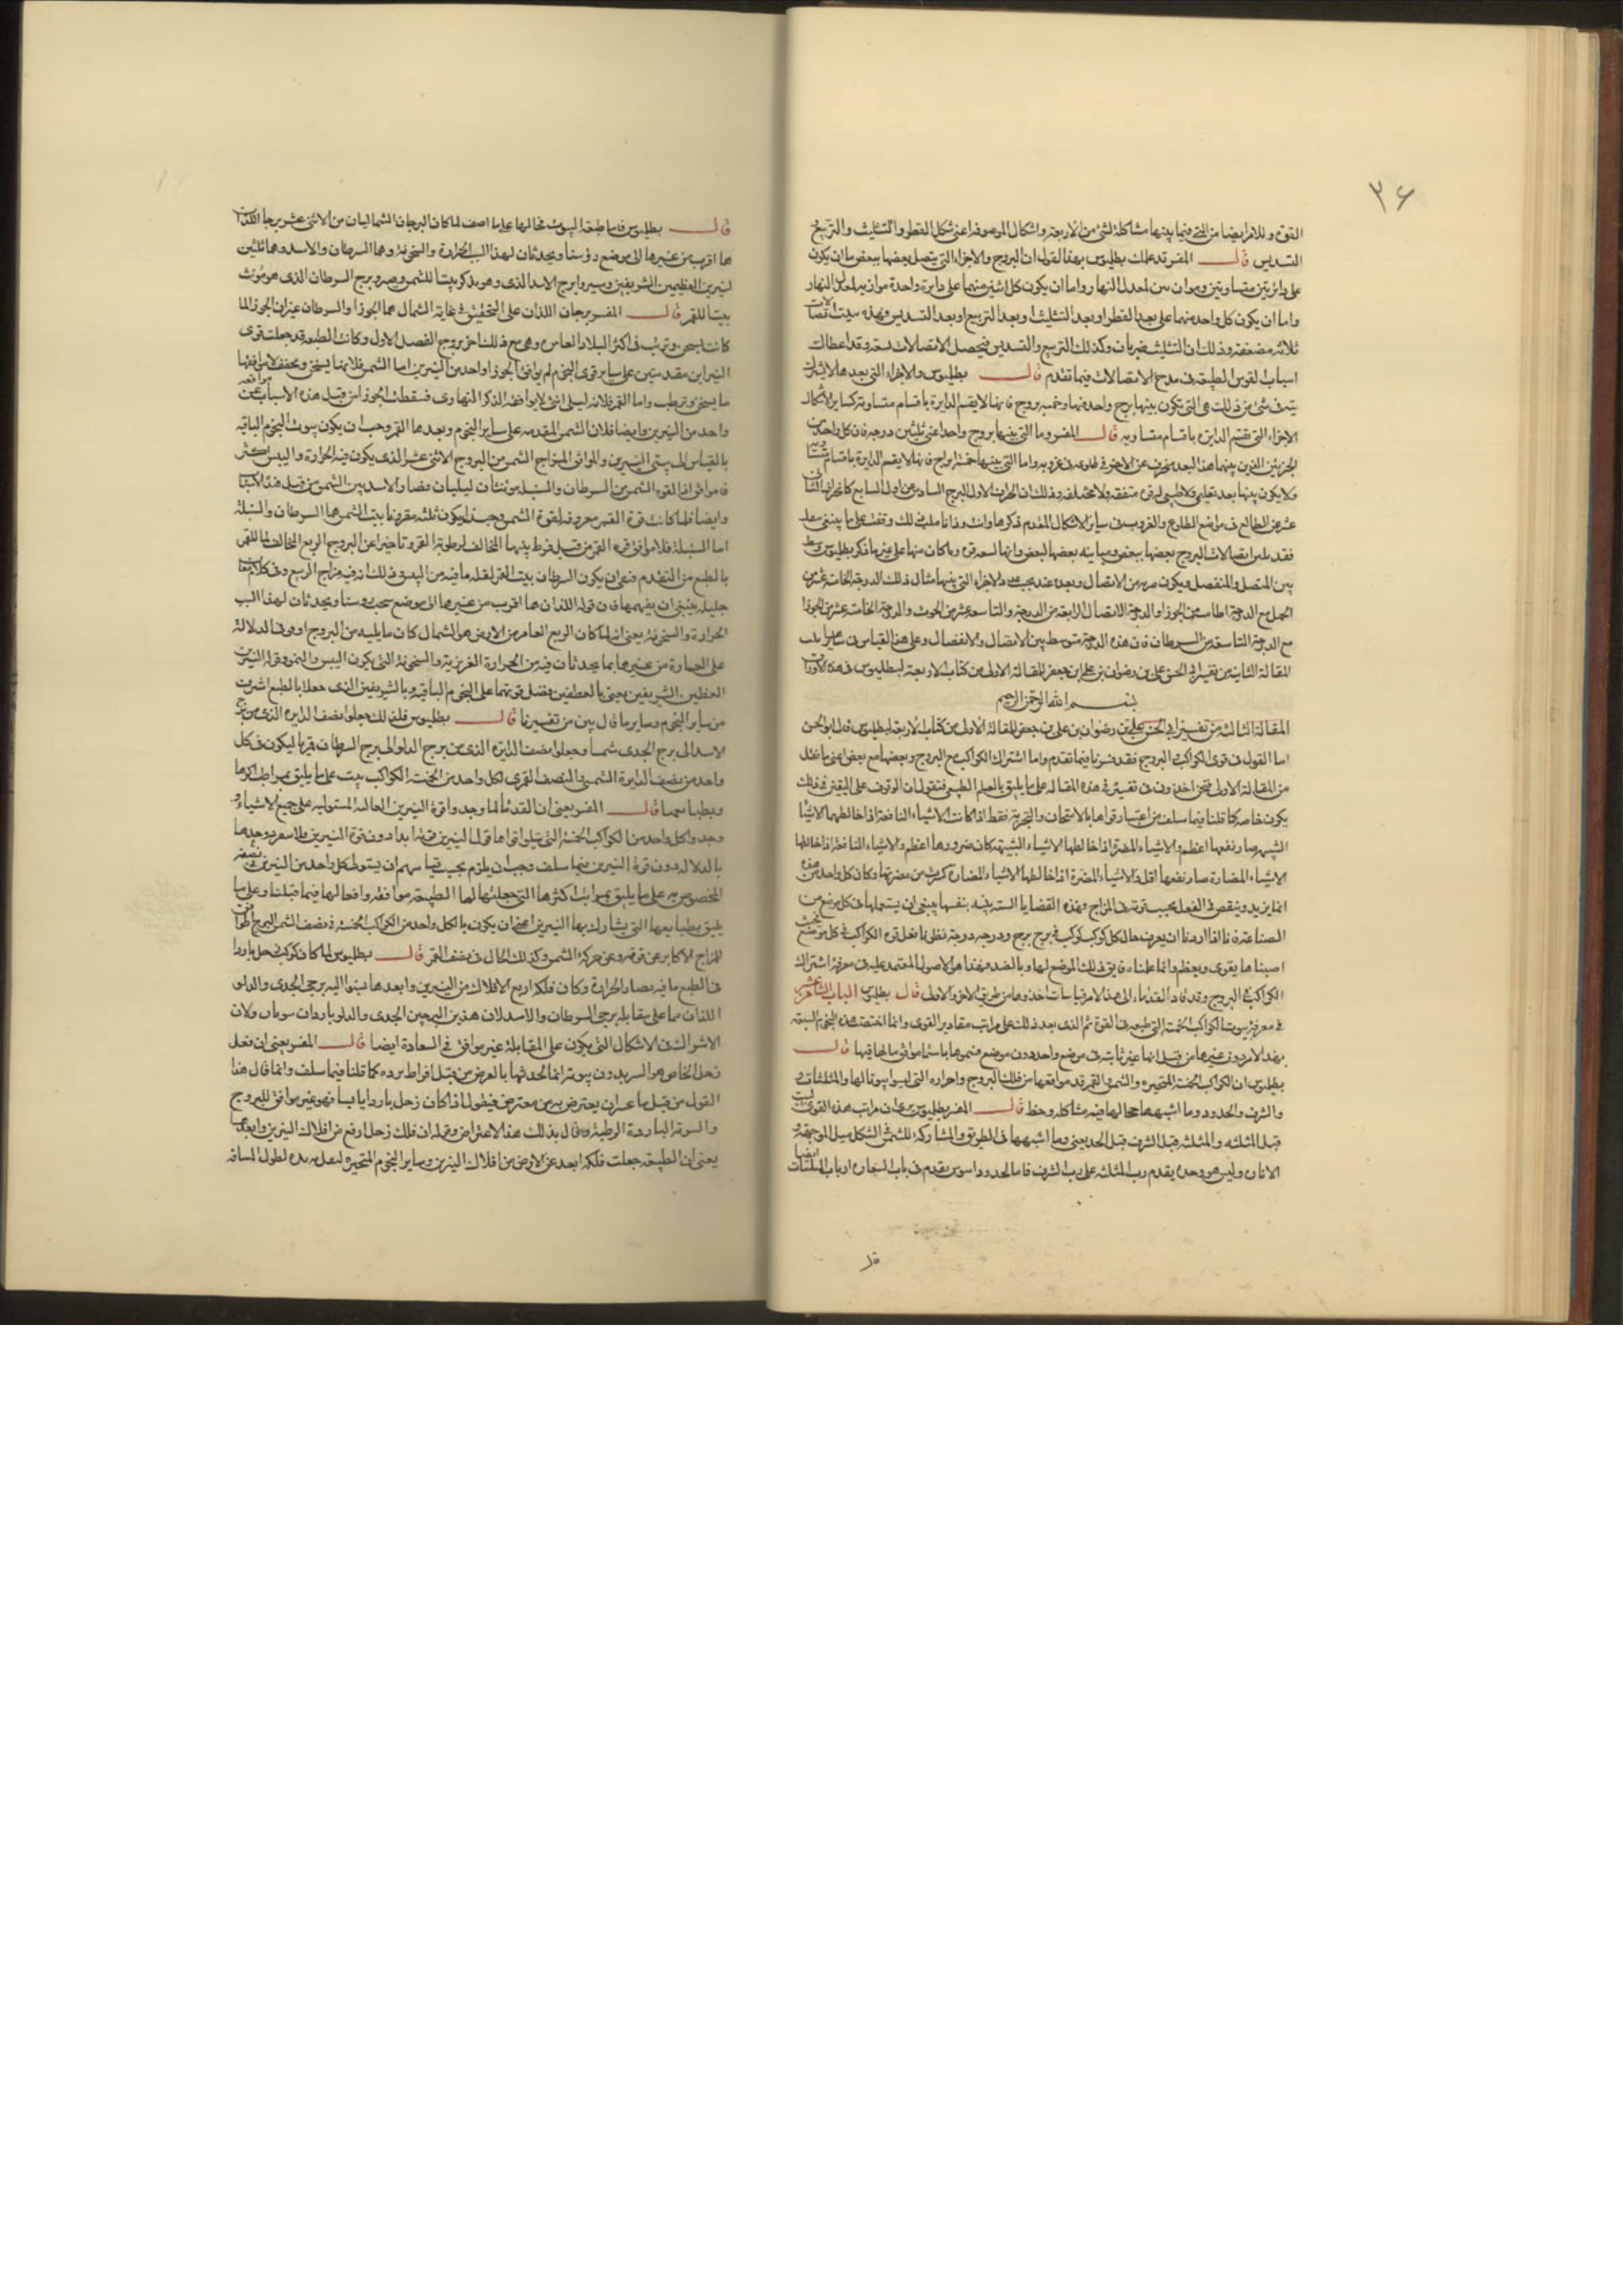 ٣٦
القوة وللامر ايضا من التي فيما بينها مشاكلة لشئ من الاربعة واشكال الموصوفة اعنى شكل القطر والتثليث والتربيع
التسديس قال المفسر قد علمك بطليموس بهذا القول ان البروج والاجزاء التي يتصل بعضها ببعض اما ان يكون
على دائرتين متساويتين من معدل النهار واما ان يكون كل اثنين منهما على دايرة واحدة موازية لمعدل النهار
واما ان يكون كل واحد منهما على بعد القطر او بعد التثليث او بعد التربيع او بعد التسديس وهذه ستة اتصالات
ثلاثة مضعفة وذلك ان التثليث ضربان وكذلك التربيع والتسديس فيحصل الاتصالات تسعة وقد اعطاك
اسباب القوس الطبيعة في مدح الاتصالات فيما تقدم قال بطليموس والاجزاء التي بعدها لا يشترك
في شئ من ذلك هي التي تكون بينها برج واحد منها وخمسة بروج فانها لا يقسم الدايرة باقسام متساوية كساير الاشكال
الاجزاء التي تقسم الدايرة باقسام متساوية قال المفسر وما التي بينها بروج واحد اعنى ثلثين درجة فان كل واحد من
الجزئين الذين بينهما هذا البعد منحرف عن الاخر في طلوعه في غروبه واما التي بينها خمسة ابراج فانها لا يقسم الدايرة باقسام متساوية
فلا يكون بينها بعد تعليمي ولا طبيعي لمرة متفقة ولا مختلفة وذلك ان انحراف الاول البرج السادس عن اول السابع كانحراف الثاني
عشر عن الطالع في مواضع الطلوع والغروب في سائر الاشكال المقدم ذكرها وانت اذا تاملت ذلك وقفت على ما ينبغى
فقد بين اتصالات البروج بعضها ببعض ومباينة بعضها لبعض وانها تسعة وما كان منها على غير ما ذكر بطليموس وسط
بين المتصل والمنفصل ويكون قربه من الاتصال وبعده عنه بحسب عدد الاجزاء التي بينها مثال ذلك الدرجة الخامسة عشر من
الحمل مع الدرجة الخامسة من الجوزا والدرجة الاتصال الرابعة من الدرجة والتاسعة عشر من الحوت والدرجة الخامسة عشر من الجوزا
مع الدرجة التاسعة من السرطان فان هذه الدرجة متوسطة بين الاتصال والانفصال وعلى هذا القياس في سائرها تمت
المقالة الثانية من تفسير ابي الحسن علي بن رضوان بن علي بن جعفر للمقالة الاولى من كتاب الاربعة لبطليموس في هذه الاوراق
بسم الله الرحمن الرحيم
المقالة الثالثة من تفسير ابي الحسن علي بن رضوان بن علي بن جعفر للمقالة الاولى من كتاب الاربعة لبطليموس قال ابو الحسن
اما القول في قوى الكواكب والبروج فقد فسرنا فيما تقدم واما اشتراك الكواكب مع البروج وبعضها مع بعض اعنى ما عدد
من المقالة الاولى فنحن اخذون في تفسيره في هذه المقالة على ما يليق بالعلم الطبيعي فنقول ان الوقوف على اليقين في ذلك
يكون خاصة كما قلنا فيما سلف من اعتبار قواها بالامتحان والتجربة فقط اذا كانت الاشياء النافعة اذا خالطها الاشياء
الشبيهة صار نفعها اعظم والاشياء المضرة اذا خالطها الاشياء الشبيهة كان ضررها اعظم والاشياء النافعة اذا خالطها
الاشياء المضادة صار نفعها اقل والاشياء المضرة اذا خالطها الاشياء المضادة كسرت من مضرتها وكان كل واحد من هذه
انما يزيد وينقص في الفعل بحسب قوته في المزاج وهذه القضايا البينة بنفسها ينبغي ان يستعملها في كل موضع من
الصناعة فانا اذا اردنا ان يعرف حال كل كوكب كوكب في برج برج ودرجة درجة نظرنا فعل قوة الكواكب في كل موضع فحيث
اصبناها يقوى ويعظم وانما علمناه فايق ذلك الموضع لها وبالضد وهذا هو الاصول المعتمد عليه في معرفة اشتراك
الكواكب في البروج وقد قاد القدماء الى هذا الامر قياسات اخذوها من طريق الاخرى والاولى قال بطليموس الباب الثامن عشر
في معرفة بيوت الكواكب الخمسة التي طبيعة في القوة ثم الذي بعد ذلك على مراتب مقادير القوى وانما اختصت هذه النجوم السبعة
بهذا الامر دون غيرها من قبل انها غير ثابتة في موضع واحد دون موضع فسموها باسماء موافق حالها فيها قال
بطليموس ان الكواكب الخمسة المتحيرة والشمس والقمر قد مواقعها من فلك البروج واجزاءه التي ليسوا بيوتا لها والمثلثات
والشرف والحدود وما اشبهها حالها فيه مشاكلة وحظ قال المفسر بطليموس بين ان مراتب هذه القوى البيت
قبل المثلثة والمثلثة قبل الشرف قبل الحد يعني وما اشبهها في الطريق والمشاركة للشمس الشكل مثل الوجه
الاناث وليس هو وحده يقدم رب المثلثة على رب الشرف فاما الحدود اسوس يقدم في باب السعادة ارباب المثلثات ايضا
قال
قال بطليموس فاما طبيعة البيوت فحالها على ما اصف لما كان البرجان الشماليان من الاثني عشر برجا اللذان
هما اقرب من غيرها الى موضع رؤسنا ويحدثان لهذا السبب الحرارة والسخونة وهما السرطان والاسد وهما ثلثين
لنيرين العظيمين الشريفين صيروا برج الاسد الذي وهو مذكر بيتا للشمس وصيروا برج السرطان الذي هو مونث
بيتا للقمر قال المفسر برجان اللذان على التحقيق في غاية الشمال هما الجوزا والسرطان غير ان الجوزا لما
كانت تسخن وترطب في اكثر البلاد العامرة وهي مع ذلك اخر بروج الفصل الاول وكانت الطبيعة قد جعلت قوى
النيرين مقدمتين على ساير قوى النجوم لم يوافق الجوزا واحد من النيرين اما الشمس فلانها يسخن ويجفف لا يوافقها
ما يسخن ويرطب واما القمر فلانه ليلى انثى لا يوافقه الذكر النهاري فسقطت الجوزا من قبل هذه الاسباب عن موافقة
واحد من النيرين وايضا فلان الشمس المقدمة على ساير النجوم وبعدها القمر وجب ان يكون بيوت النجوم الباقية
بالقياس الى بيتي النيرين والموافق لمزاج الشمس من البروج الاثني عشر الذي يكون فيه الحرارة واليبس اكثر
فاموافق اذا لقوة الشمس من السرطان والسنبلة مونثان ليليان فصار الاسد بيت الشمس من قبل هذه الاسباب
وايضا فلما كانت قوة القمر معروفة بقوة الشمس وجب ان يكون بيته مقرونا ببيت الشمس هما السرطان والسنبلة
اما السنبلة فلا موافق قوة القمر من قبل فرط يبسها المخالف لرطوبة القمر وتاخيرا عن البروج الربع المخالف لما للقمر
بالطبع من التقدم فبقي ان يكون السرطان بيت القمر لقلة ما فيه من اليبس وذلك انه في مزاج الربيع وفي كلام معان
جليلة ينبغي ان يفهمها فان قوله اللذان هما اقرب من غيرها الى موضع سمت روسنا ويحدثان لهذا السبب
الحرارة والسخونة يعني ان لما كان الربع العامر من الارض هو الشمال كان ما يليه من البروج اوفى الدلالة
على العمارة من غيرها بما يحدثان فيه من الحرارة الغريزية والسخونة التي يكون اليبس والنمو وقوله النيرين
العظيمين الشريفين يعني بالعظيمين يفضل قوتهما على النجوم الباقية وبالشريفين الذي جعلا بالطبع اشرف
من ساير النجوم وساير ما قال بين من تفسيرنا قال بطليموس فلذلك جعلوا نصف الدايرة الذي من برج
الاسد الى برج الجدي شمسا وجعلوا نصف الدايرة الذي من برج الدلو الى برج السرطان قمريا ليكون في كل
واحد من نصف الدايرة الشمسي والنصف القمري لكل واحد من الخمسة الكواكب بيت على ما يليق بمراتب اكرها
وبطبايعها قال المفسر يعني ان القدماء لما وجدوا قوة النيرين العالمة المستولية على جميع الاشياء و
وجدوا كل واحد من الكواكب الخمسة التي يتلوا قواها قوة النيرين قوته ابدا دون قوة النيرين
بالدلالة دون قوة النيرين فيما سلف وجب ان يلزم بحسب قياسهم ان يستوى كل واحد من النيرين بنصفه
المخصوص به على ما يليق بمراتب اكرها التي جعلتها لها الطبيعة موافقة وافعالها فيما قبلنا وعلى ما
يليق بطبايعها التي يشارك بها النيرين اعني ان يكون بالكل واحد من الكواكب الخمسة في نصف الشمس البرج
للمزاج الاكابر عن قوة وعن حركة الشمس وكذلك الحال في نصف القمر قال بطليموس لما كان كوكب زحل باردا
في الطبع ما فيه يضاد الحرارة وكان فلكه ارفع الافلاك من النيرين وابعدها نسبوا اليه برجي الجدي والدلو
اللذان هما على مقابلة برجي السرطان والاسد لان هذين البرجين الجدي والدلو باردان ولان
الاشتراك في الاشكال التي يكون على المقابلة غير موافق في السعادة ايضا قال المفسر يعني ان فعل
زحل الخاص هو التبريد دون يبوسة انما احدثها بالعرض من قبل افراط برده كما قلنا فيما سلف وانما قال هذا
القول من قبل ما عسى ان يعترض به من معترض فيقول اذا كان زحل باردا يابسا فهو غير موافق للبروج
والبيوت الباردة الرطبة وقال بذلك هذا الاعتراض وقوله ان فلك زحل ارفع من افلاك النيرين وابعدها
يعني ان الطبيعة جعلت فلكه ابعد عن الارض من افلاك النيرين وساير النجوم المتحيرة لتعدل برده لطول المسافة